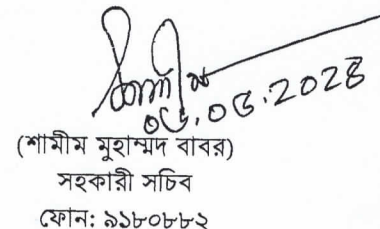 ০৬.০৫.২০২৪
(শামীম মুহাম্মদ বাবর)
সহকারী সচিব
ফোন: ৯১৮০৮৮২